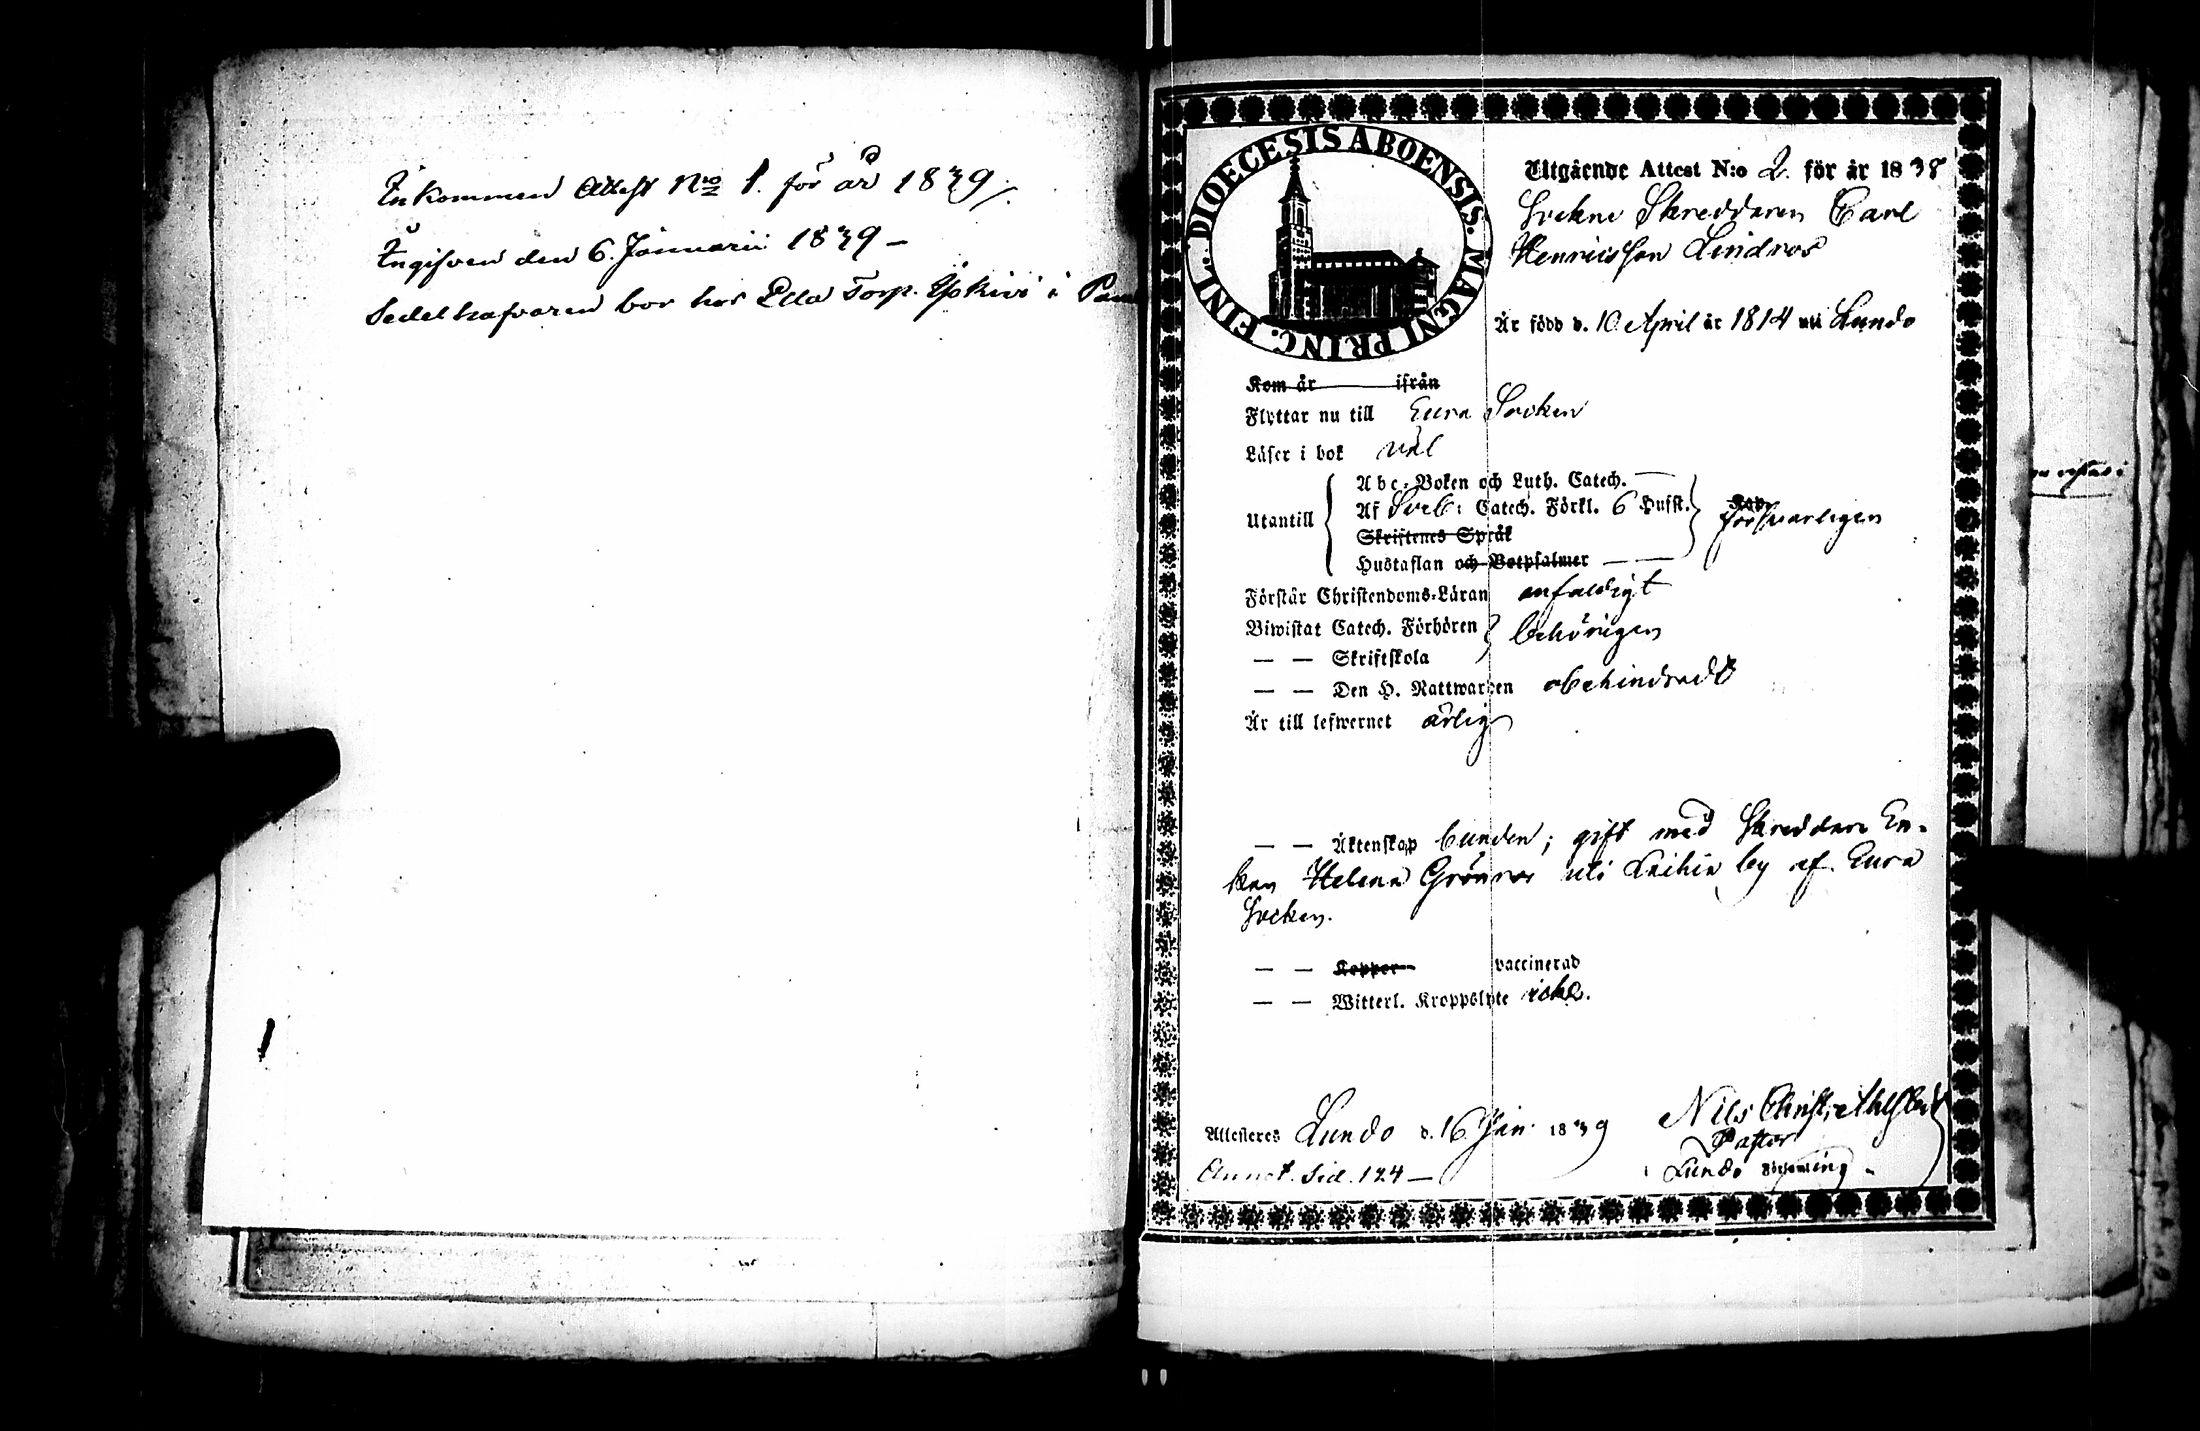 Inkommen Attest N:o 1. för år 1839.
Ingifven den 6. Januarii 1839 –
Sedelhafvaren bor hos Ella Torp. i
DIOECESIS ABOENSIS. MAGNI PRINC. FINL.
Utgående Attest N:o 2. för år 1838
Sockne Skreddaren Carl
Henricsson Lindros
Är född d. 10 April år 1814 uti Lundo
Kom år ifrån
Flyttar nu till Eura Socken
Läser i bok väl
Abc-Boken och Luth. Catech. —
Utantill Af Sveb: Catech. Förkl. 6 Hufst. försvarligen
Skriftenes Språk
Hustaflan och Botpsalmer — —
Förstår Christendoms-Läran enfaldigt
Biwistat Catech. Förhören behörigen
— — Skriftskola
— — Den H. Nattwarden obehindradt
Är till lefwernet ärlig
— — Äktenskap bunden; gift med Skreddare En-
kan Helena Grönros uti Laihia by af Eura
Socken.
— — Koppor vaccinerad
— — Witterl. Kroppslyte icke.
Attesteres Lundo d. 16 Jan. 1839 Nils Christ.
Pastor
Annot. Sid. 124 — i Lundo Församling